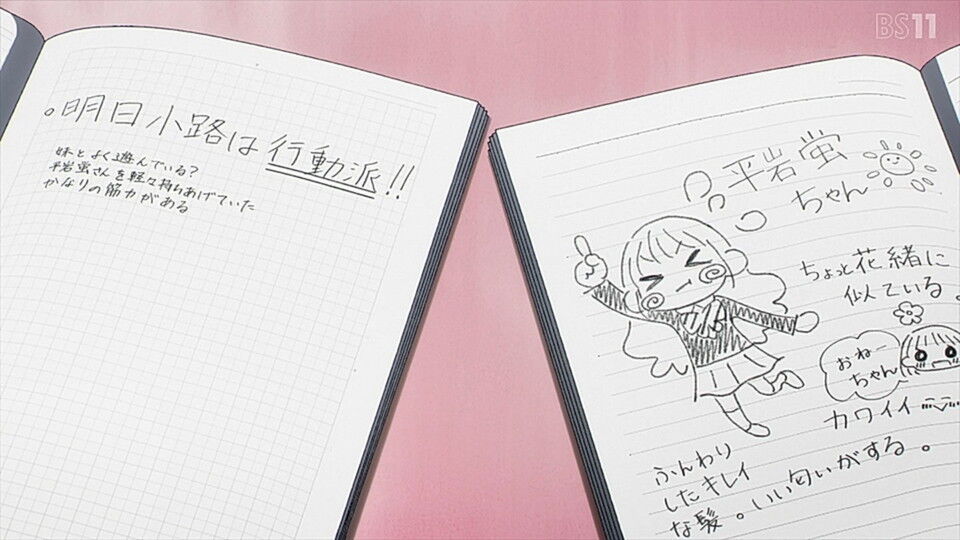 BS11
。明日小路は行動派!!
妹とよく遊んでいる?
平岩蛍さんを軽々持ちあげていた
かなりの筋力がある
平岩蛍
ちゃん
ちょっと花緒に
似ている。
おねー
ちゃん
カワイイ
ふんわり
したキレイ
な髪。いい匂いがする。